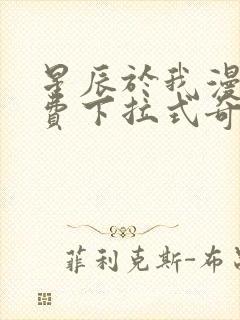 星辰於我漫
费下拉式奇
菲利克斯-布